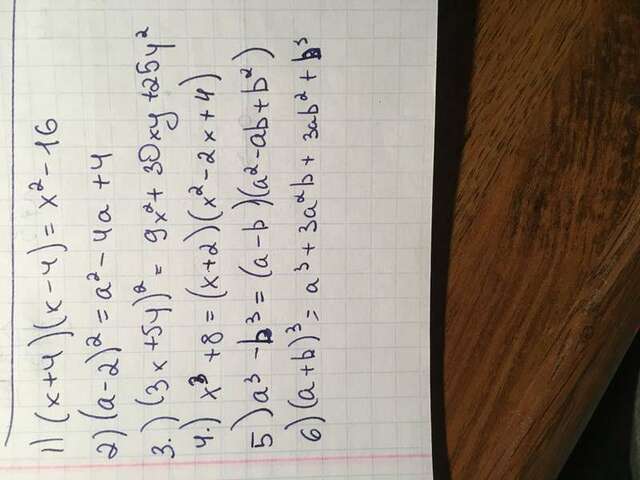 1) (x+4)(x-4) = x² - 16
2) (a-2)² = a² - 4a + 4
3.) (3x + 5y)² = 9x² + 30xy + 25y²
4.) x³ + 8 = (x+2)(x² - 2x + 4)
5) a³ - b³ = (a-b)(a² - ab + b²)
6) (a+b)³ = a³ + 3a²b + 3ab² + b³